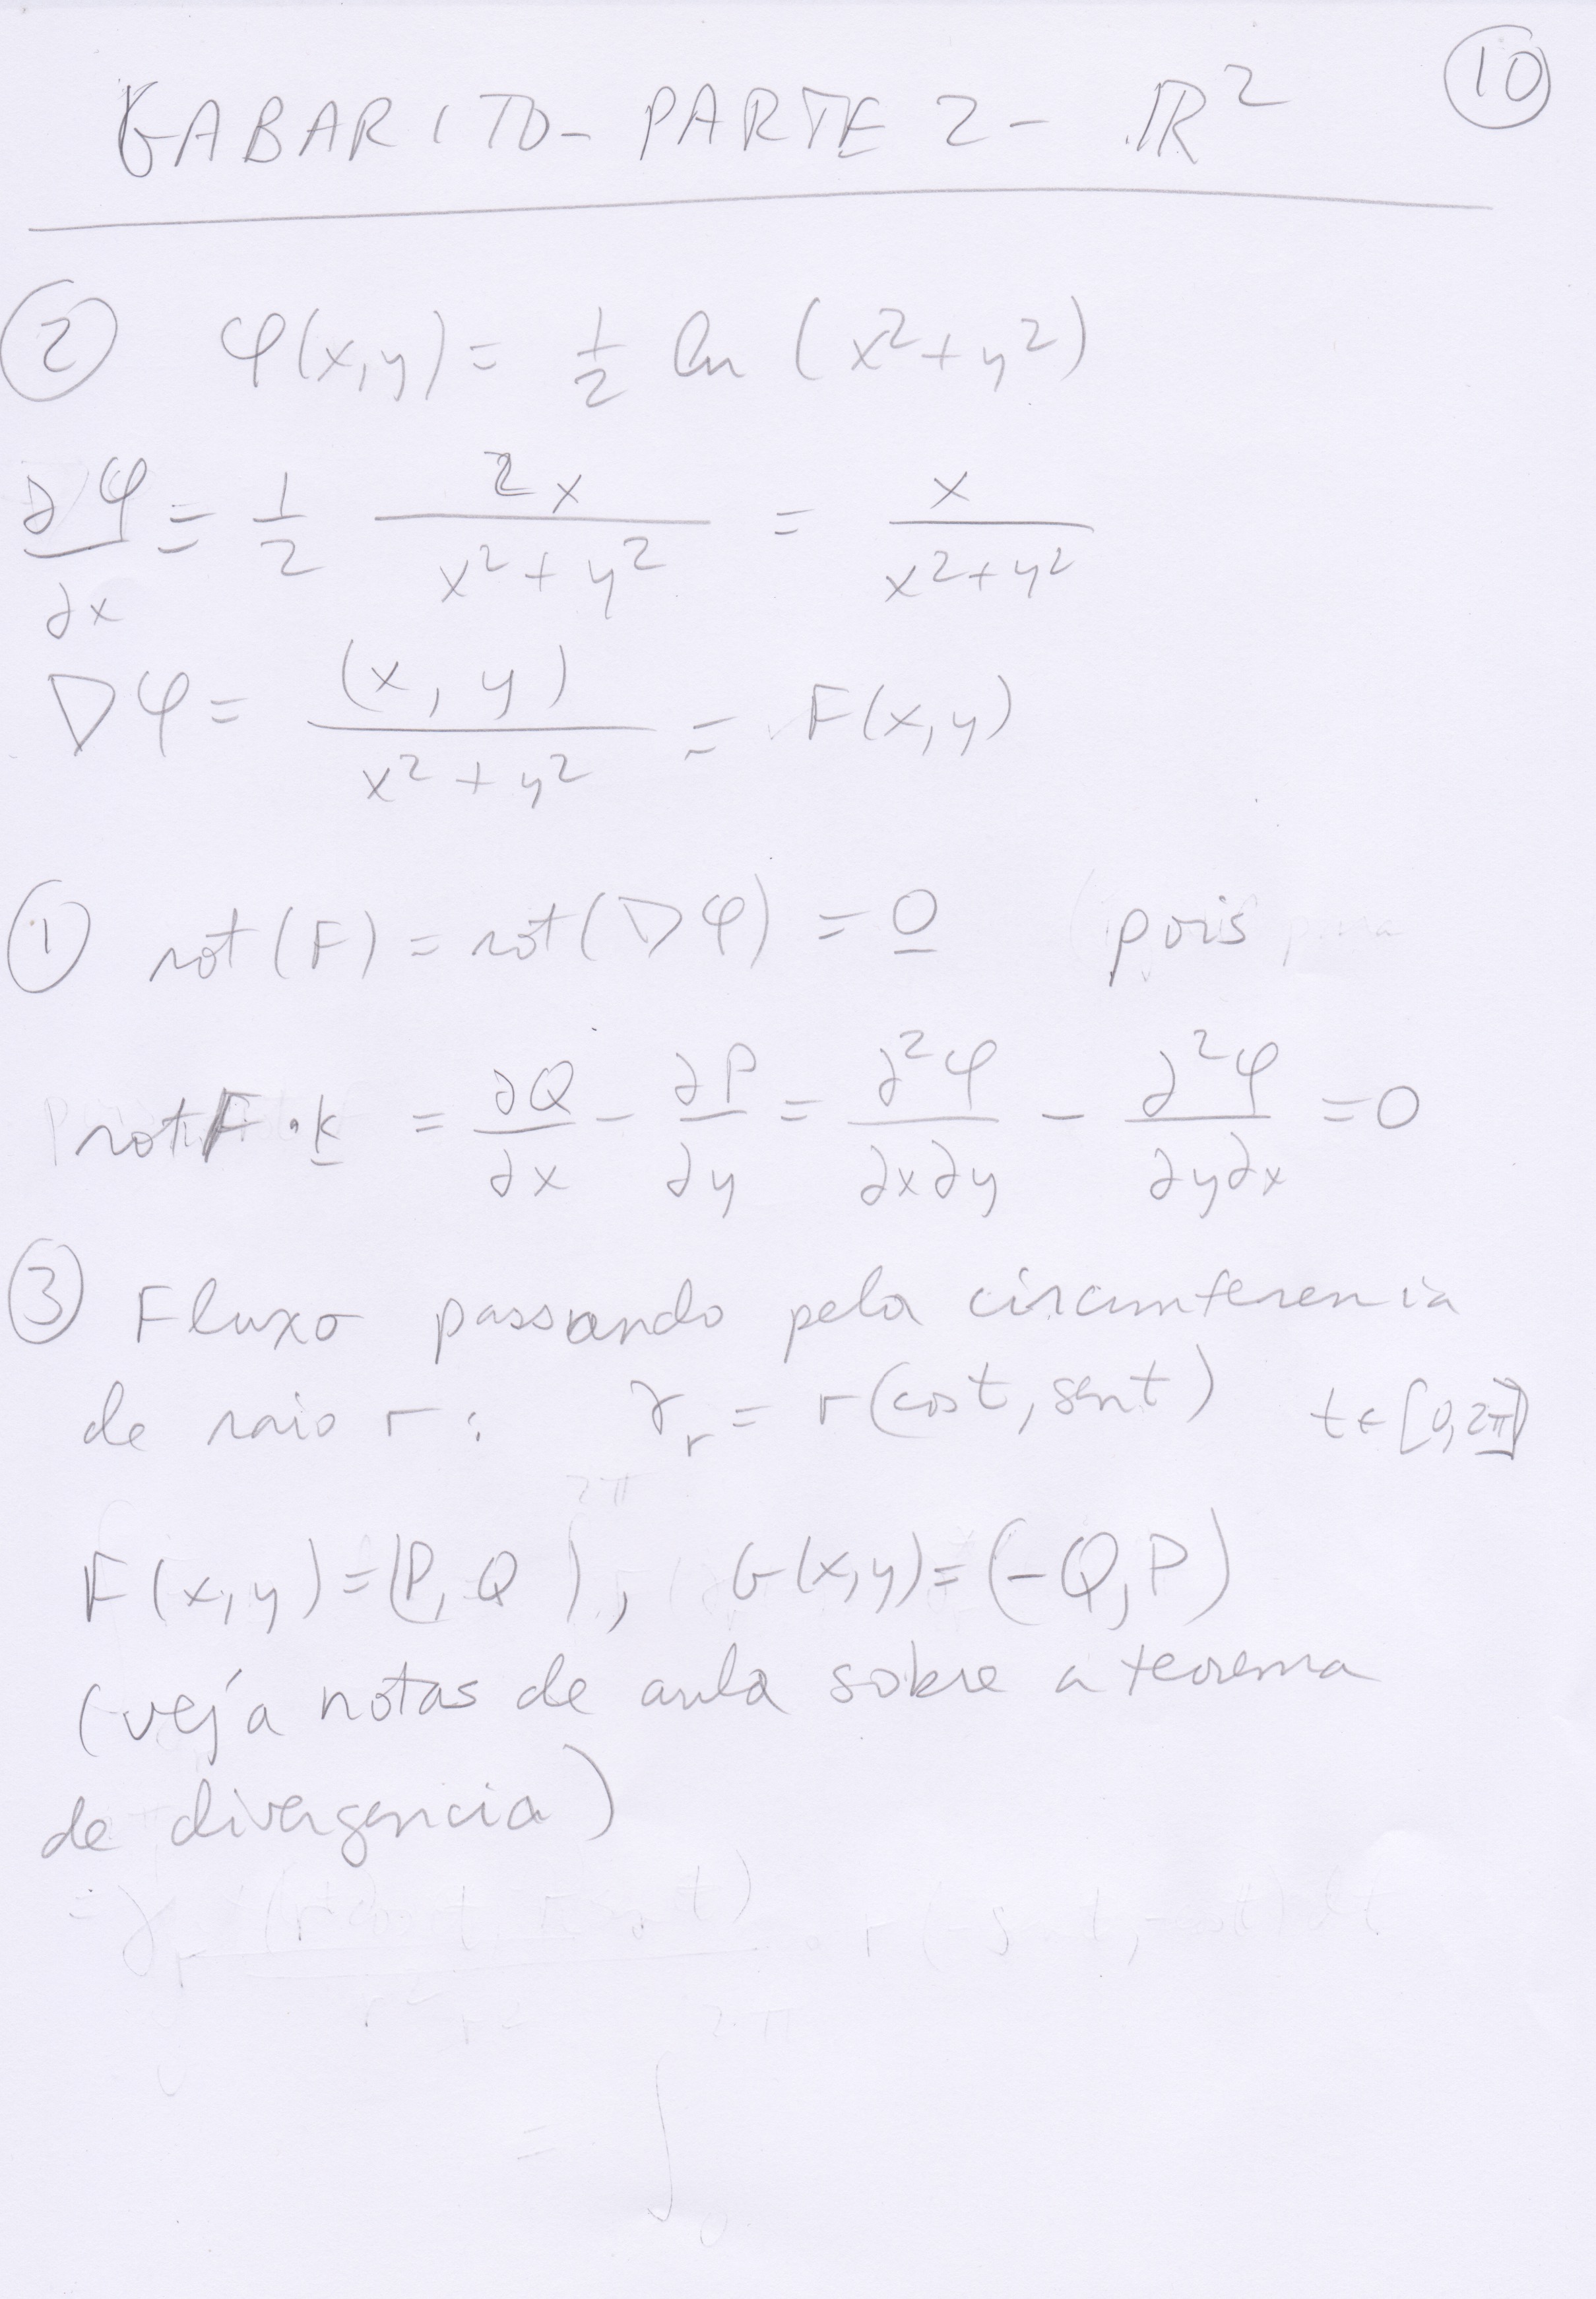 GABARITO - PARTE 2 - ℝ² ⑩
② φ(x,y) = 1/2 ln (x²+y²)
∂φ/∂x = 1/2 2x/(x²+y²) = x/(x²+y²)
∇φ = (x, y)/(x²+y²) = F(x,y)
① rot(F) = rot(∇φ) = 0 pois
rot F · k = ∂Q/∂x - ∂P/∂y = ∂²φ/∂x∂y - ∂²φ/∂y∂x = 0
③ Fluxo passando pela circunferencia
de raio r: γᵣ = r(cost, sent) t ∈ [0,2π]
F(x,y) = (P, Q), G(x,y) = (-Q, P)
(veja notas de aula sobre a teorema
de divergencia)